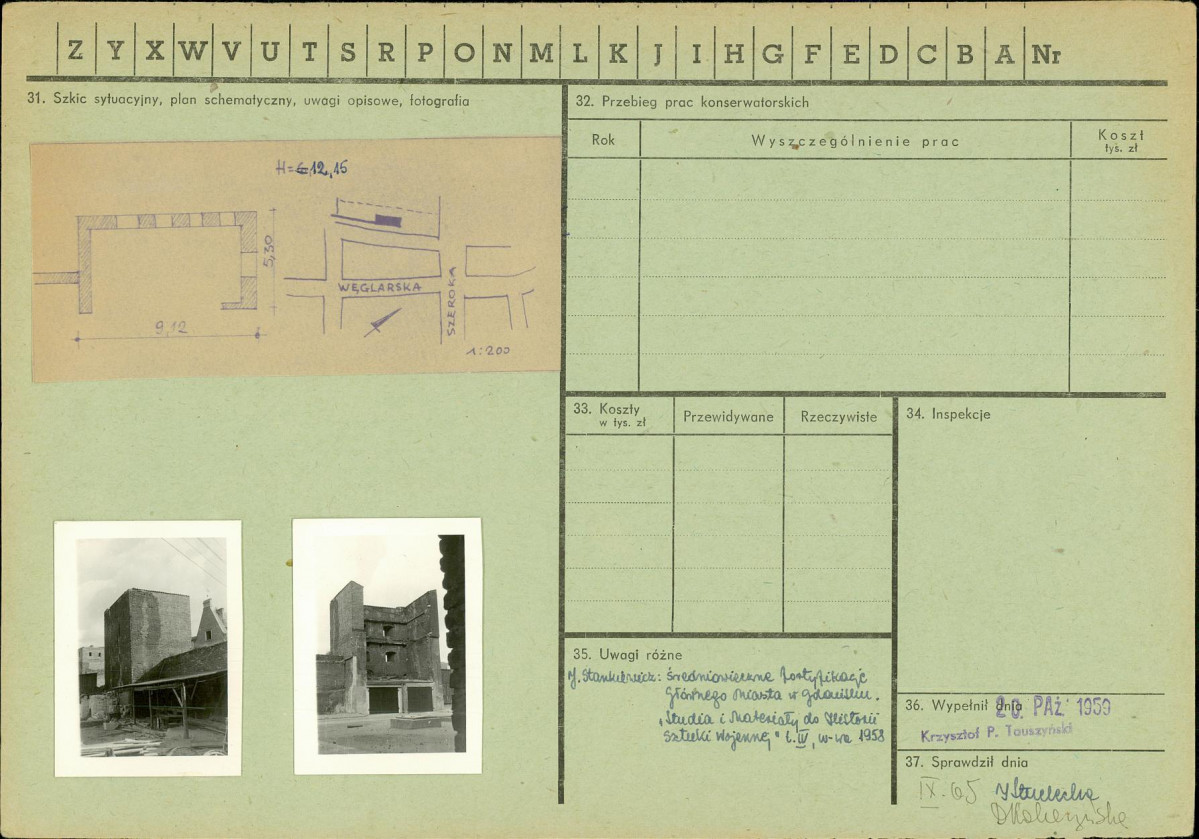 Z Y X W V U T S R P O N M L K J I H G F E D C B A Nr
31. Szkic sytuacyjny, plan schematyczny, uwagi opisowe, fotografia
H= 12,15
5,30
9,12
WĘGLARSKA
SZEROKA
1:200
32. Przebieg prac konserwatorskich
Rok
Wyszczególnienie prac
Koszt
tyś. zł
33. Koszty
w tys. zł
Przewidywane
Rzeczywiste
34. Inspekcje
35. Uwagi różne
J. Stankiewicz: Średniowieczne fortyfikacje
Głównego Miasta w Gdańsku.
„Studia i Materiały do Historii
Sztuki Wojennej" t. IV, W-wa 1958
36. Wypełnił dnia
20. PAŹ. 1959
Krzysztof P. Tauszyński
37. Sprawdził dnia
IX.65